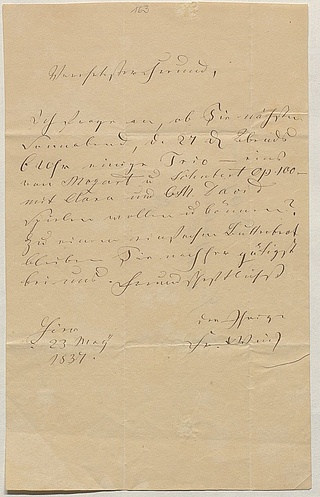 163
Verehrtester Freund,
Ich frage an, ob Sie nächsten
Sonnabend, de 27 d Abends
6 Uhr einige Trio – eins
von Mozart u Schubert Op. 100 –
mit Clara und CM David
spielen wollen u können?
Zu einem einfachen Butterbrot
bleiben Sie nachher gütigst
bei uns. Freundschaftlichst
der Ihrige
Fr. Wieck
23 May
1837.